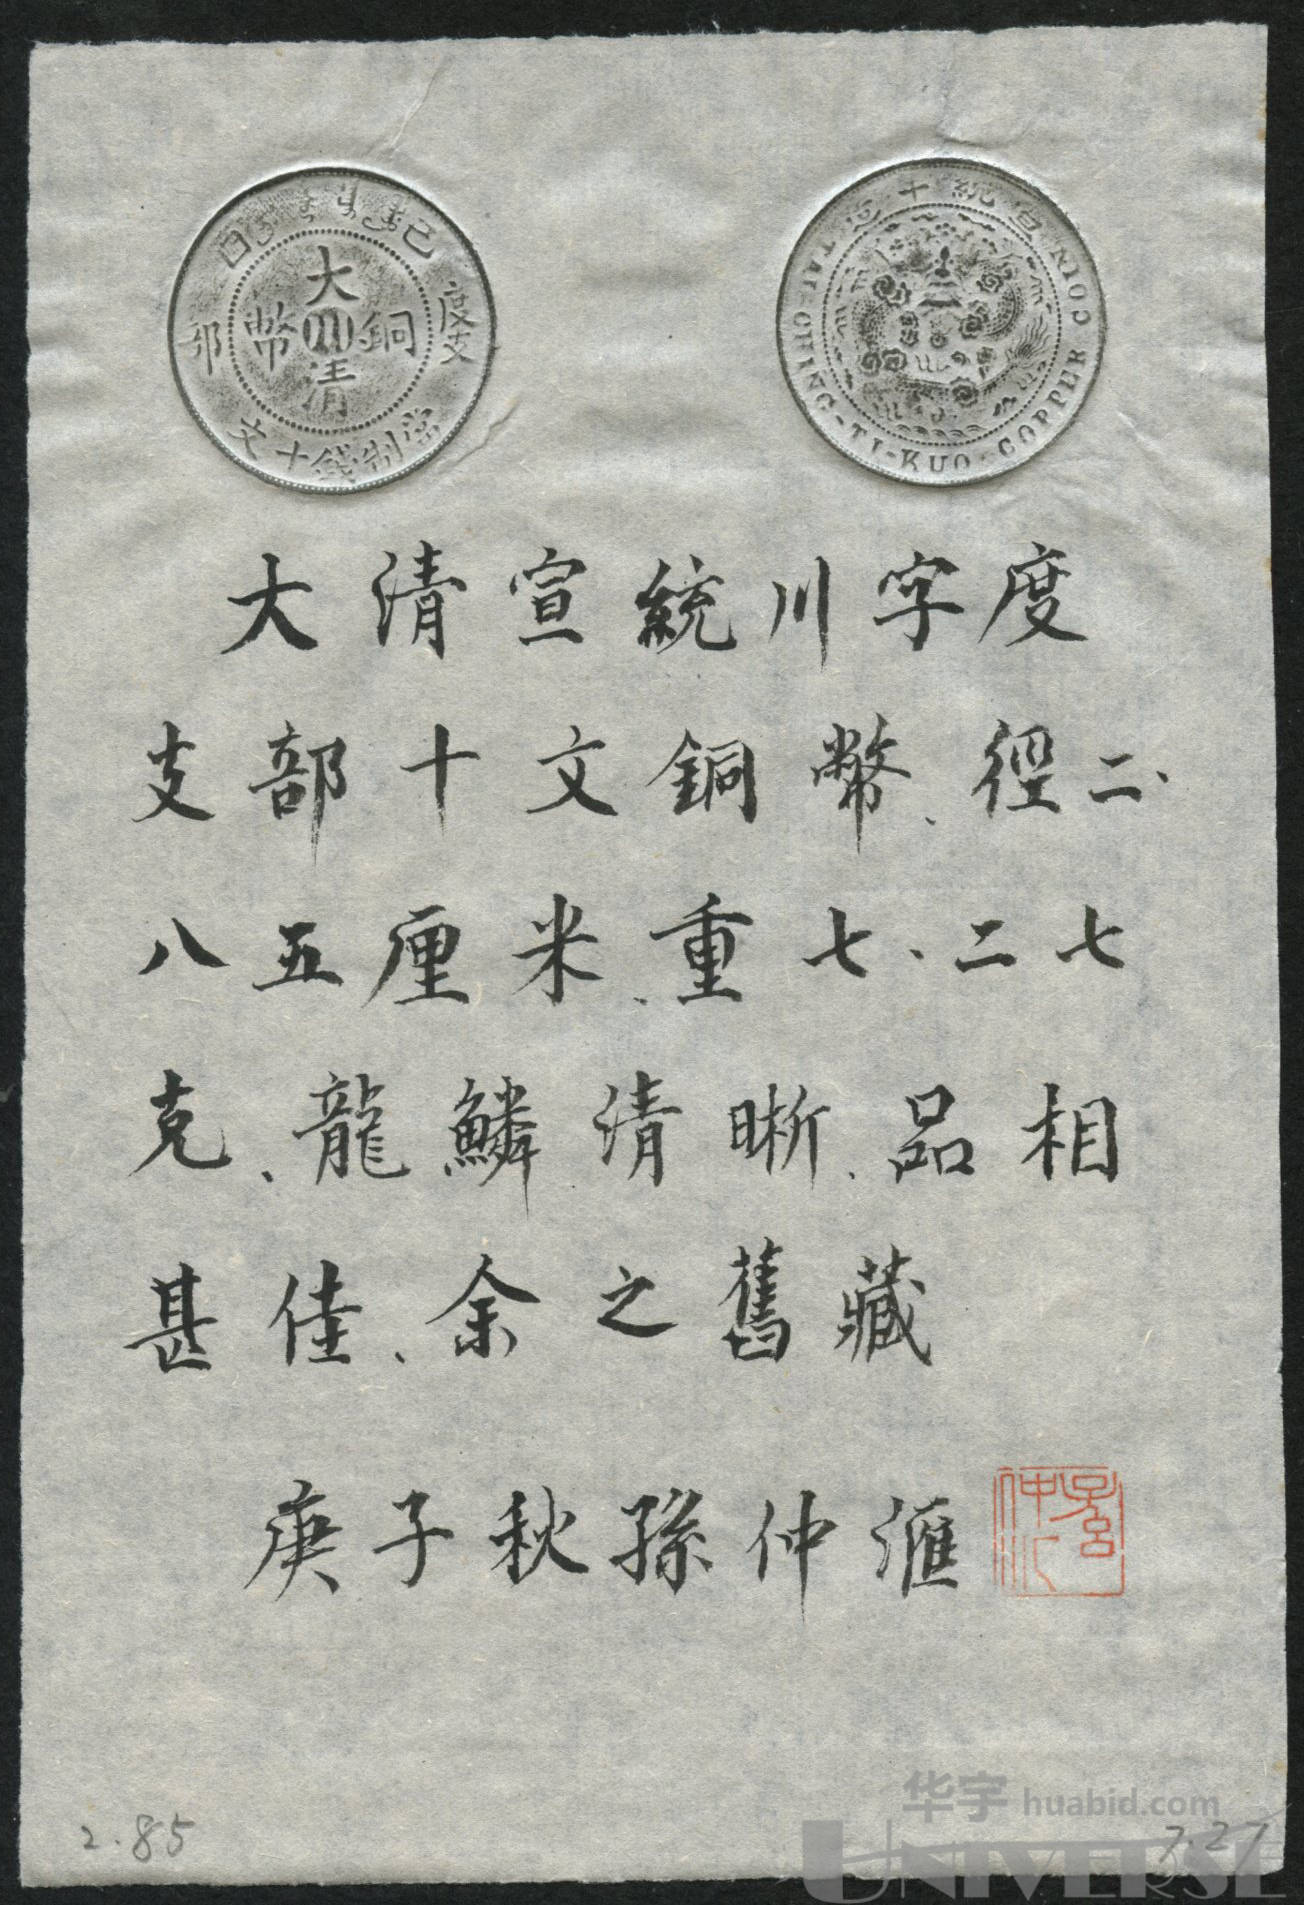 己酉
度支
部
大清
銅幣
川
當制錢十文
宣統年造
TAI-CHING-TI-KUO COPPER COIN
大清宣統川字度
支部十文銅幣、徑二、
八五厘米、重七、二七
克、龍鱗清晰、品相
甚佳、余之舊藏
庚子秋孫仲滙
2.85
7.27
华宇 huabid.com
UNIVERSE